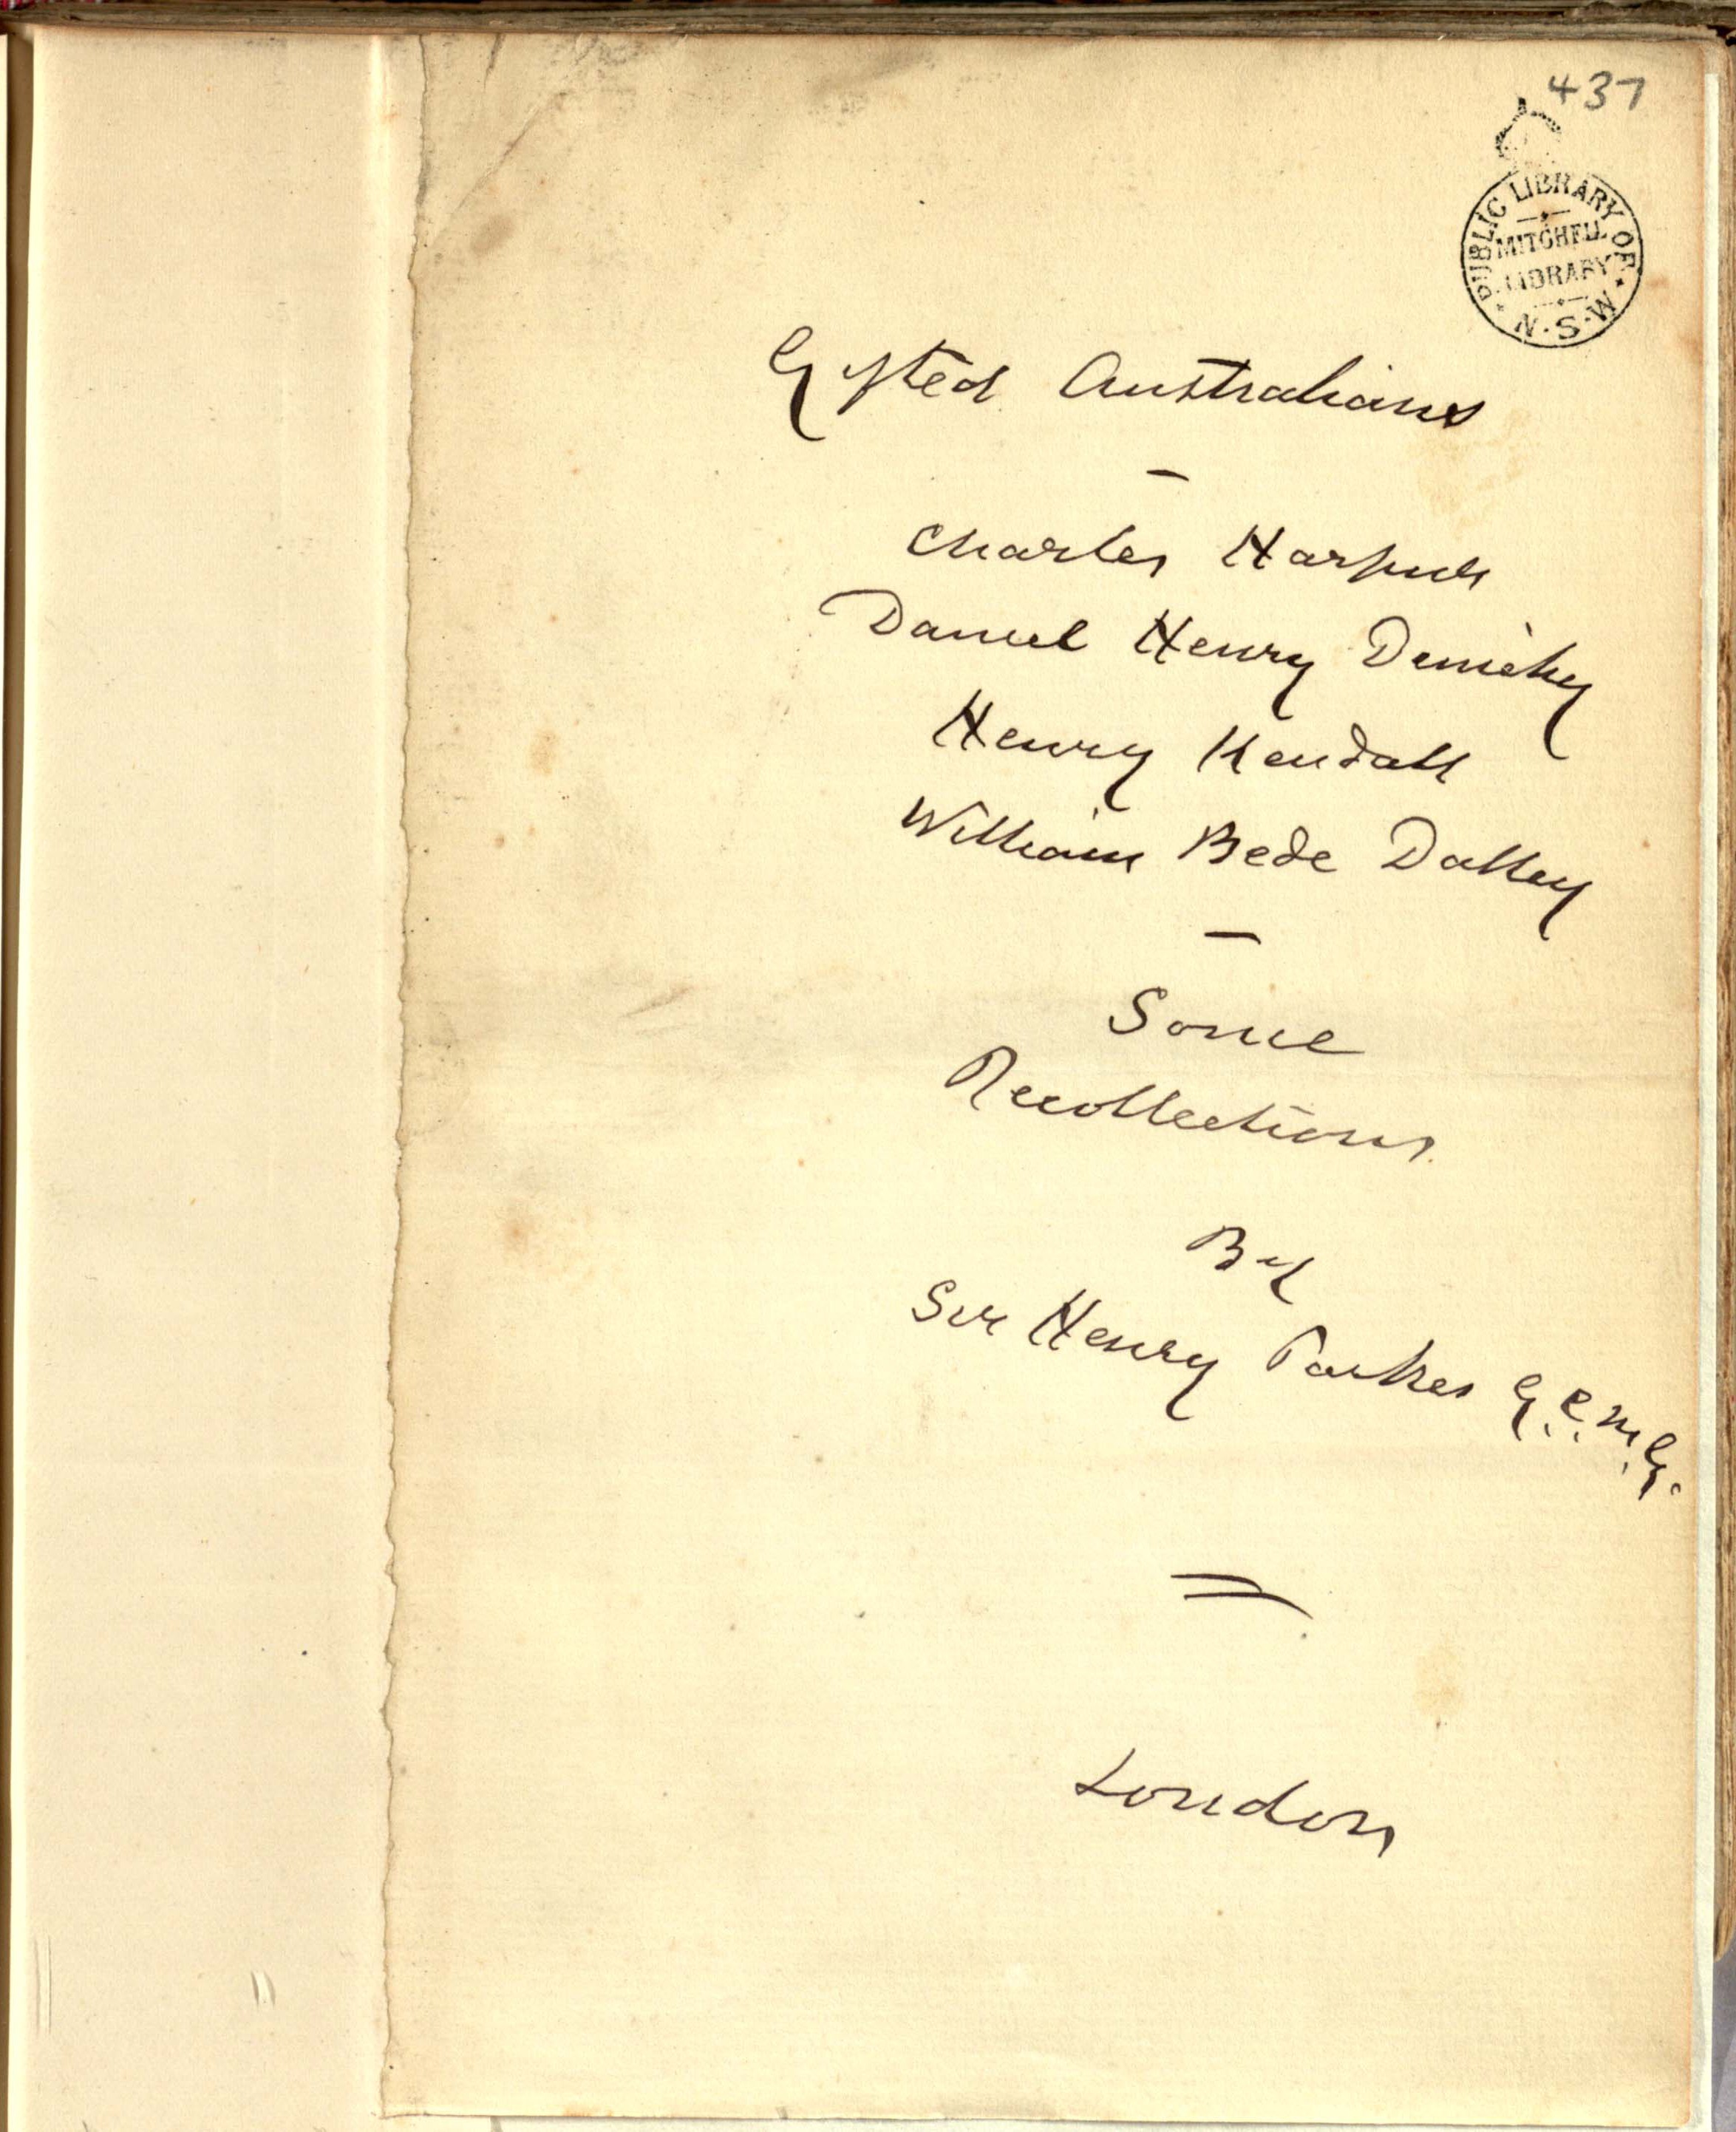 437
PUBLIC LIBRARY OF N.S.W
MITCHELL
LIBRARY
Gifted Australians
Charles Harpur
Daniel Henry Deniehy
Henry Kendall
William Bede Dalley
Some
Recollections.
By
Sir Henry Parkes G.C.M.G.
London